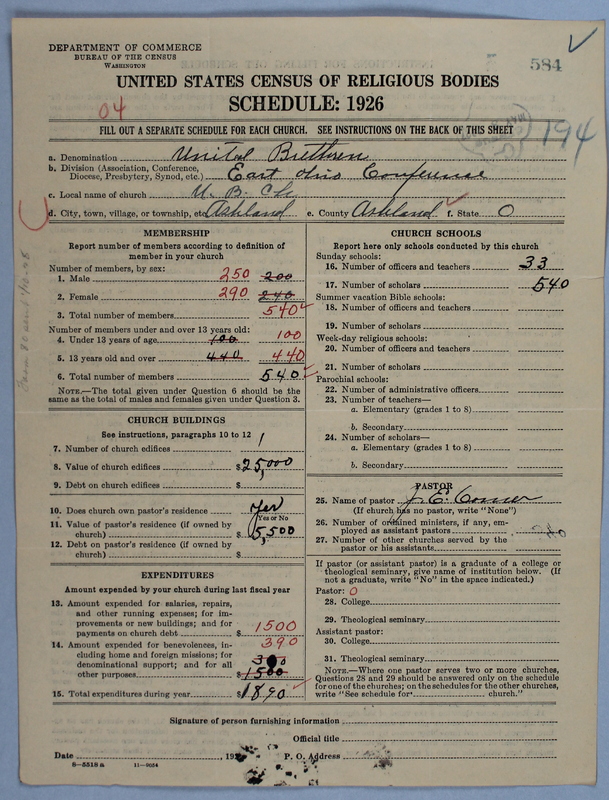 DEPARTMENT OF COMMERCE
BUREAU OF THE CENSUS
WASHINGTON
584
UNITED STATES CENSUS OF RELIGIOUS BODIES
SCHEDULE: 1926
04
FILL OUT A SEPARATE SCHEDULE FOR EACH CHURCH. SEE INSTRUCTIONS ON THE BACK OF THIS SHEET
194
a. Denomination United Brethren
b. Division (Association, Conference, Diocese, Presbytery, Synod, etc.) East Ohio Conference
c. Local name of church U. B. Ch
d. City, town, village, or township, etc. Ashland e. County Ashland f. State O
MEMBERSHIP
Report number of members according to definition of member in your church
Number of members, by sex:
1. Male 250 200
2. Female 290 240
3. Total number of members 540
Number of members under and over 13 years old:
4. Under 13 years of age 100 100
5. 13 years old and over 440 440
6. Total number of members 540
NOTE.—The total given under Question 6 should be the same as the total of males and females given under Question 3.
CHURCH BUILDINGS
See instructions, paragraphs 10 to 12
7. Number of church edifices 1
8. Value of church edifices $25,000
9. Debt on church edifices $
10. Does church own pastor's residence Yes
(Yes or No)
11. Value of pastor's residence (if owned by church) $5,500
12. Debt on pastor's residence (if owned by church) $
EXPENDITURES
Amount expended by your church during last fiscal year
13. Amount expended for salaries, repairs, and other running expenses; for improvements or new buildings; and for payments on church debt $1500
14. Amount expended for benevolences, including home and foreign missions; for denominational support; and for all other purposes 390
$1500
15. Total expenditures during year $1890
CHURCH SCHOOLS
Report here only schools conducted by this church
Sunday schools:
16. Number of officers and teachers 33
17. Number of scholars 540
Summer vacation Bible schools:
18. Number of officers and teachers
19. Number of scholars
Week-day religious schools:
20. Number of officers and teachers
21. Number of scholars
Parochial schools:
22. Number of administrative officers
23. Number of teachers—
a. Elementary (grades 1 to 8)
b. Secondary
24. Number of scholars—
a. Elementary (grades 1 to 8)
b. Secondary
PASTOR
25. Name of pastor J. E. Comer
(If church has no pastor, write "None")
26. Number of ordained ministers, if any, employed as assistant pastors
27. Number of other churches served by the pastor or his assistants
If pastor (or assistant pastor) is a graduate of a college or theological seminary, give name of institution below. (If not a graduate, write "No" in the space indicated.)
Pastor: 0
28. College
29. Theological seminary
Assistant pastor:
30. College
31. Theological seminary
NOTE.—Where one pastor serves two or more churches, Questions 28 and 29 should be answered only on the schedule for one of the churches; on the schedules for the other churches, write "See schedule for church."
Signature of person furnishing information
Official title
Date , 192 P. O. Address
8—5518 a 11—9054